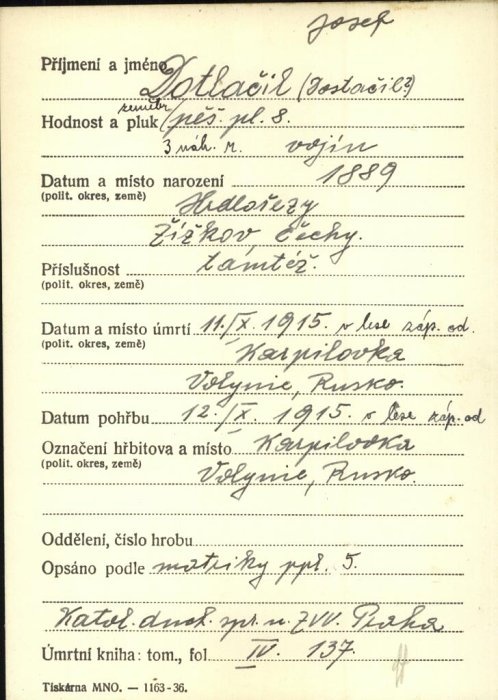 Josef
Příjmení a jméno Dotlačil (Dostačil?)
zeměbr.
Hodnost a pluk pěš. pl. 8.
3 náh. r. vojín
Datum a místo narození 1889
(polit. okres, země)
Hrdlořezy
Žižkov, Čechy.
Příslušnost tamtéž.
(polit. okres, země)
Datum a místo úmrtí 11./X. 1915. v lese záp. od
(polit. okres, země)
Karpilovka
Volynie, Rusko.
Datum pohřbu 12./X. 1915. v lese záp. od
Označení hřbitova a místo Karpilovka
(polit. okres, země)
Volynie, Rusko.
Oddělení, číslo hrobu
Opsáno podle matriky ppl. 5.
Katol. duch. spr. u ZVV. Praha
Úmrtní kniha: tom., fol IV. 137.
Tiskárna MNO. — 1163-36.